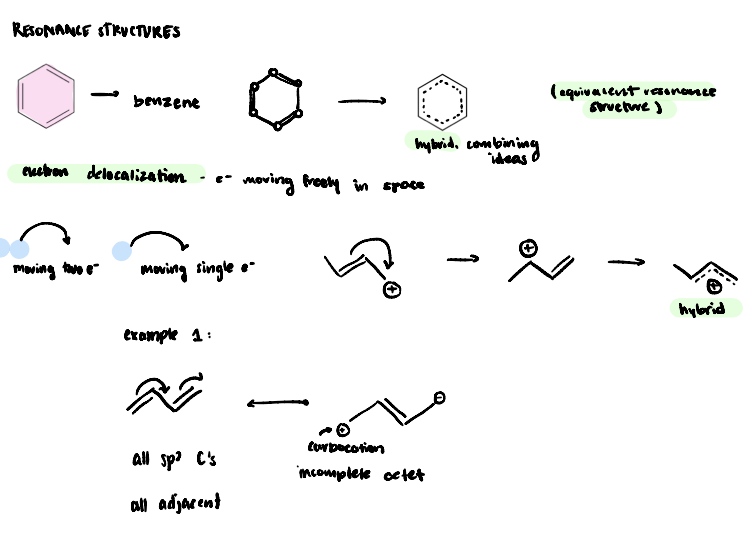 RESONANCE STRUCTURES
benzene
(equivalent resonance
structure)
hybrid, combining
ideas
electron delocalization - e⁻ moving freely in space
moving two e⁻
moving single e⁻
⊕
⊕
⊕
hybrid
example 1:
⊖
⊕
carbocation
incomplete octet
all sp² C's
all adjacent